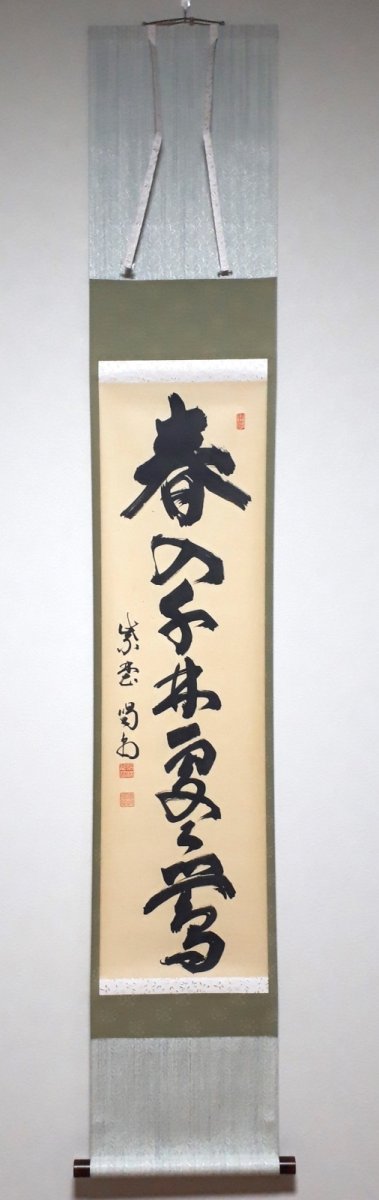 春入千林處々鶯
紫雲